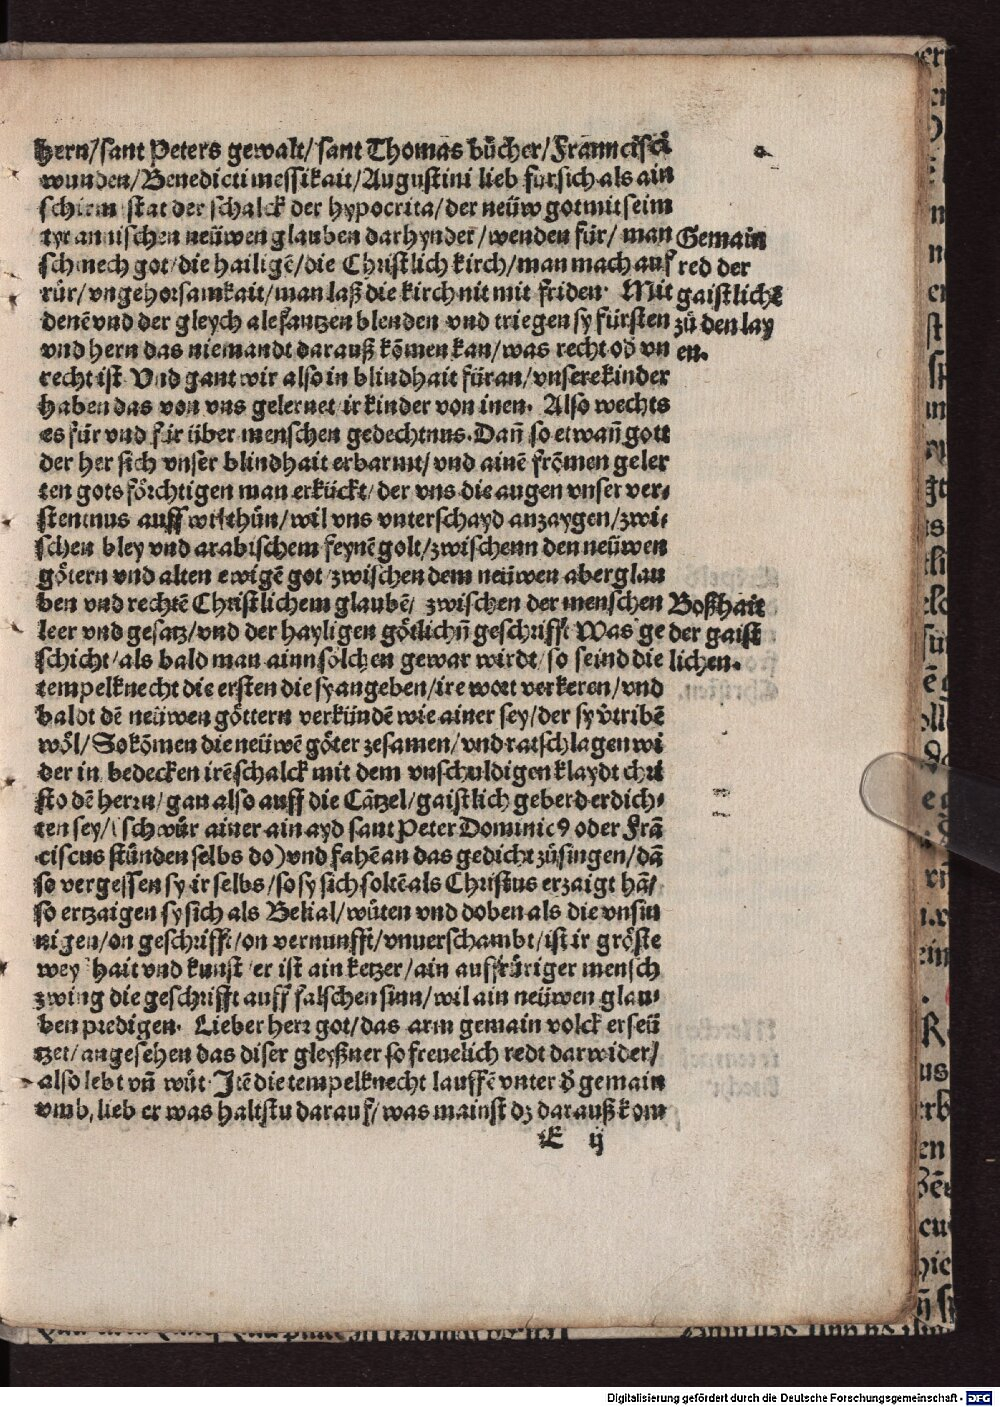 hern/sant Peters gewalt/sant Thomas bücher/Francisci
wunden/Benedicti messikait/Augustini lieb fürsich als ain
schirm stat der schalck der hypocrita/der neüw got mit seim
tyrannischen neüwen glauben darhynder/wenden für/man
schmech got/die hailigē/die Christlich kirch/man mach auf
rür/vngehorsamkait/man laß die kirch nit mit friden. Mit
denē vnd der gleych alefantzen blenden vnd triegen sy fürsten
vnd hern das niemandt darauß kōmen kan/was recht od vn
recht ist. Vnd gant wir also in blindhait füran/vnsere kinder
haben das von vns gelernet ir kinder von inen. Also wechts
es für vnd für über menschen gedechtnus. Dañ so etwañ gott
der her sich vnser blindhait erbarmt/vnd ainē frōmen geler
ten gots förchtigen man erkückt/der vns die augen vnser ver-
stentnus auff wil thün/wil vns vnterschayd anzaygen/zwi-
schen bley vnd arabischem feynē golt/zwischenn den neüwen
götern vnd alten ewigē got/zwischen dem neüwen aberglau
ben vnd rechtē Christlichem glaubē/zwischen der menschen
leer vnd gesatz/vnd der hayligen götlichñ geschrifft Was ge
schicht/als bald man ainn sölchen gewar wirdt/so seind die
tempelknecht die ersten die sy angeben/ire wort verkeren/vnd
baldt dē neüwen göttern verkündē wie ainer sey/der sy v̄tribē
wöl/So kōmen die neüwē göter zesamen/vnd ratschlagen wi
der in bedecken irē schalck mit dem vnschuldigen klaydt chri
sto dē herrn/gan also auff die Cātzel/gaistlich geberd erdich-
ten sey/(schwür ainer ain ayd sant Peter Dominicꝰ oder Frā
ciscus stünden selbs do) vnd fahē an das gedicht zü singen/dā
so vergessen sy ir selbs/so sy sich soltē als Christus erzaigt hā/
so ertzaigen sy sich als Belial/wüten vnd doben als die vnsin
nigen/on geschrifft/on vernunfft/vnuerschambt/ist ir gröste
weyßhait vnd kunst er ist ain ketzer/ain auffrüriger mensch
zwing die geschrifft auff falschen sinn/wil ain neüwen glau-
ben predigen. Lieber herr got/das arm gemain volck erseü
tzet/angesehen das diser gleyßner so freuelich redt darwider/
also lebt vñ wüt. Itē die tempelknecht lauffē vnter d̄ gemain
vmb, lieb er was haltstu darauf/was mainst dz darauß kom
E ij
Gemain
red der
gaistlichē
zü den lay
en.
Boßhait
der gaist
lichen.
Digitalisierung gefördert durch die Deutsche Forschungsgemeinschaft - DFG